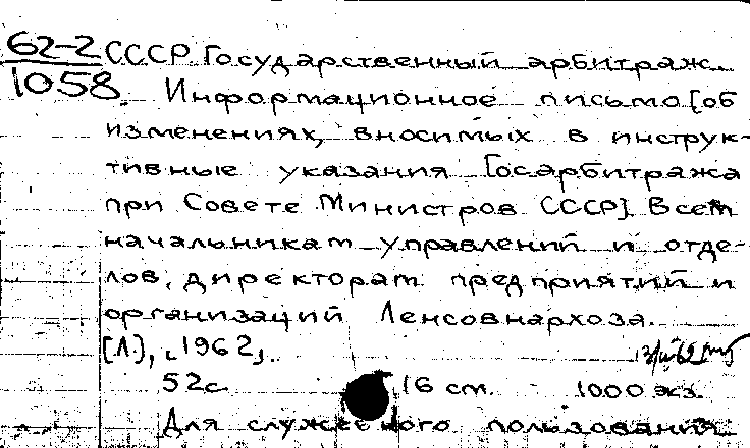 62-2 СССР. Государственный арбитраж.
1058. Информационное письмо [об
изменениях, вносимых в инструк-
тивные указания Госарбитража
при Совете Министров СССР]. Всем
начальникам управлений и отде-
лов, директорам предприятий и
организаций Ленсовнархоза.
[Л.], [1962].
52с. 16 см. 1000 экз.
Для служебного пользования